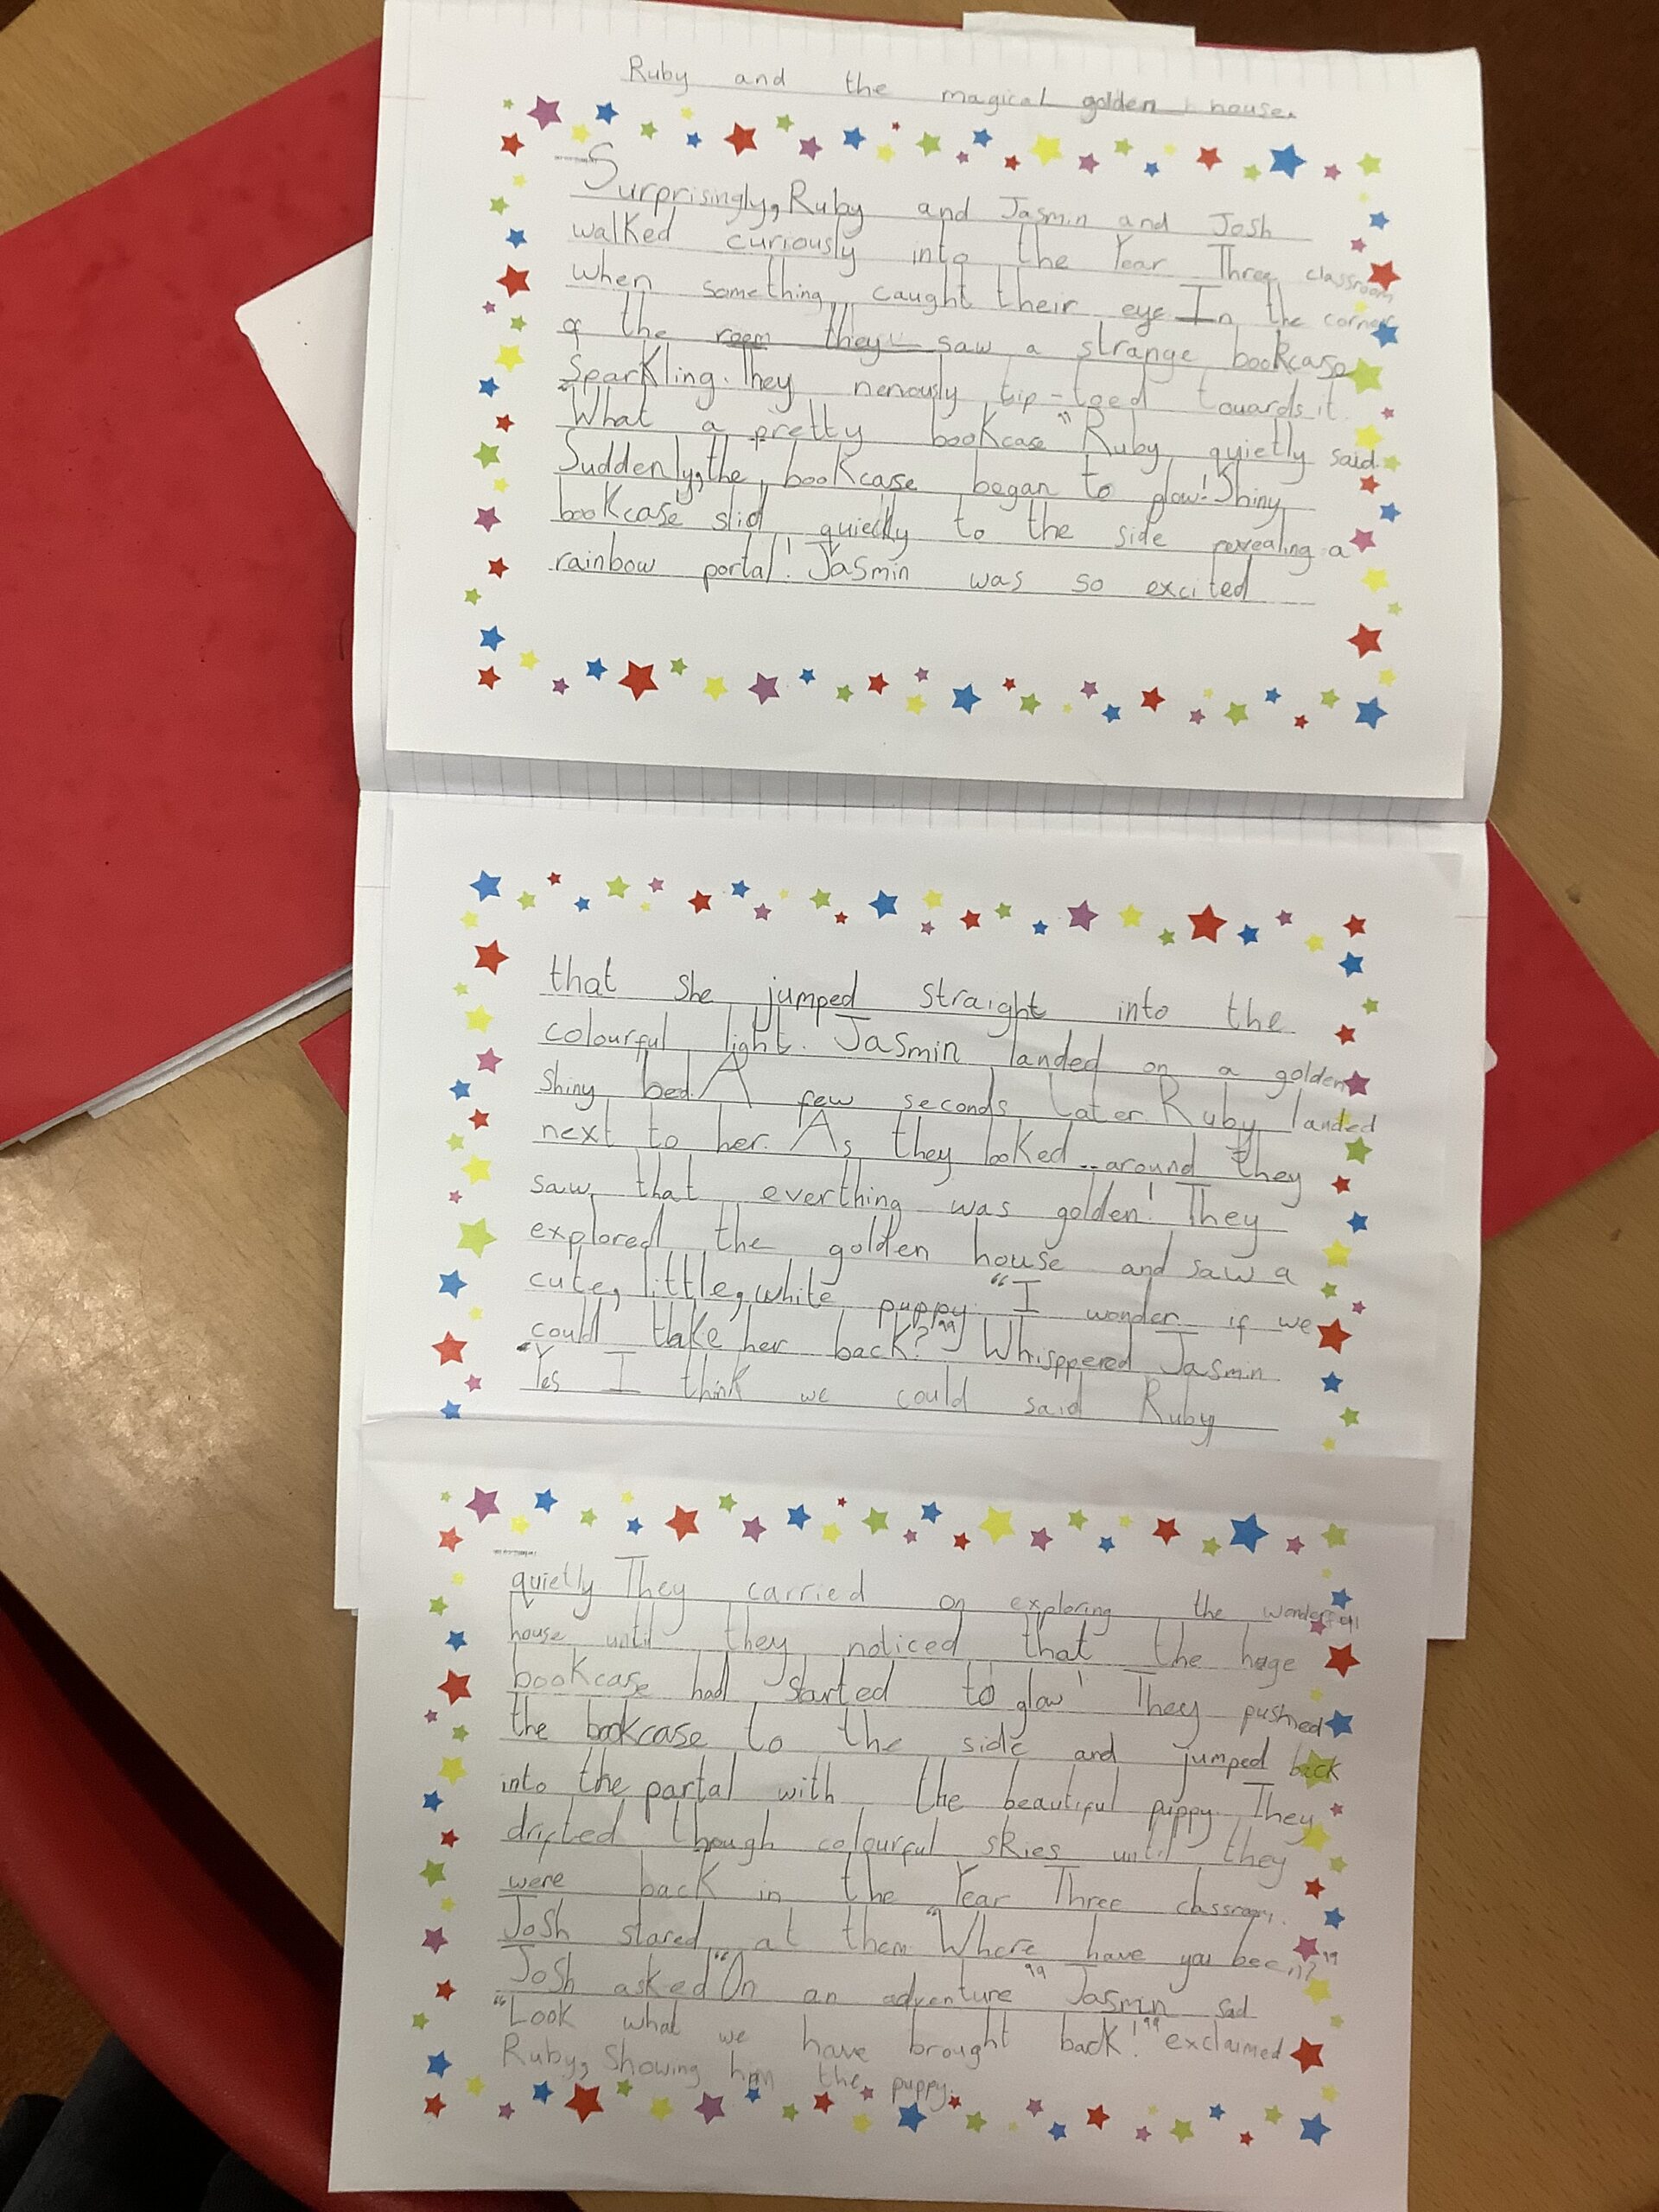 Ruby and the magical golden house.
Surprisingly, Ruby and Jasmin and Josh
walked curiously into the Year Three classroom
when something caught their eye In the corner
of the room they saw a strange bookcase
Sparkling. They nervously tip-toed towards it.
"What a pretty bookcase" Ruby quietly said.
Suddenly, the bookcase began to glow! Shiny
bookcase slid quietly to the side revealing a
rainbow portal! Jasmin was so excited
that she jumped straight into the
colourful light. Jasmin landed on a golden
shiny bed. A few seconds later Ruby landed
next to her. As they looked around they
saw that everthing was golden! They
explored the golden house and saw a
cute, little, white puppy. "I wonder if we
could take her back?" Whisppered Jasmin
"Yes I think we could said Ruby
quietly They carried on exploring the
house until they noticed that the huge
bookcase had started to glow! They pushed
the bookcase to the side and jumped back
into the partal with the beautiful puppy. They
drifted though colourful skies until they
were back in the Year Three classroom.
Josh stared at them "Where have you been?"
Josh asked "On an adventure" Jasmin sad
"Look what we have brought back!" exclaimed
Ruby, Showing him the puppy.